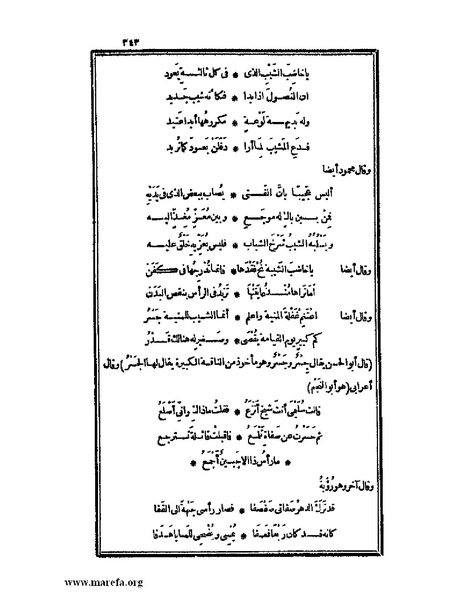 ٣٤٣
ياخاضب الشيب الذى * فى كل ثالثة يعود
ان النصول اذا بدا * فكانه شيب جديد
وله بديهة لوعة * مكروهها أبدا عتيد
فدع المشيب لما أرا * د فلن يعود كما تريد
وقال محمود أيضا
أليس عجيبا بان الفتى * يصاب ببعض الذى فى يديه
فمن بين باك له موجع * وبين معز مغذ اليه
ويسلبه الشيب شرخ الشباب * فليس يعزيه خلق عليه
وقال أيضا ياخاضب الشيبة نح فقدها * فانما تدرجها فى كفن
أما تراها منذ عاينتها * تزيد فى الرأس بنقص البدن
وقال أيضا اغتنم غفلة المنية واعلم * أنما الشيب للمنية جسر
كم كبير يوم القيامة يقصى * وصغير له هنالك قدر
(قال أبو الحسن يقال جسر وجسر وهو مأخوذ من الناقة الكبيرة يقال لها الجسر) وقال
أعرابى (هو أبو النجم)
قالت سليمى أنت شيخ أنزع * فقلت ماذاك وانى أصلع
ثم حسرت عن صفاة تلمع * فاقبلت قائلة تسترجع
* مارأس ذا الا جبين أجمع *
وقال آخر وهو رؤبة
قد ترك الدهر صفاتى صفصفا * فصار رأسى جبهة الى القفا
كانه قد كان ربعا فعفا * يمسى ويضحى للمنايا هدفا
www.marefa.org